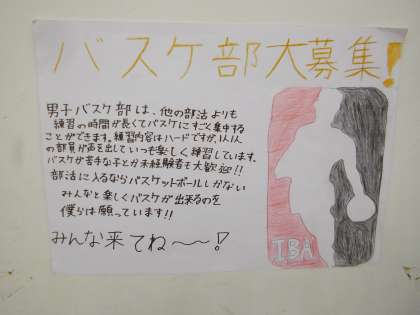 バスケ部大募集!
男子バスケ部は、他の部活よりも
練習の時間が長くてバスケにすごく集中する
ことができます。練習内容はハードですが、1人1人
の部員が声を出していつも楽しく練習しています。
バスケが苦手な子とか未経験者も大歓迎!!
部活に入るならバスケットボールしかない
みんなと楽しくバスケが出来るのを
僕らは願っています!!
みんな来てね〜〜!
IBA